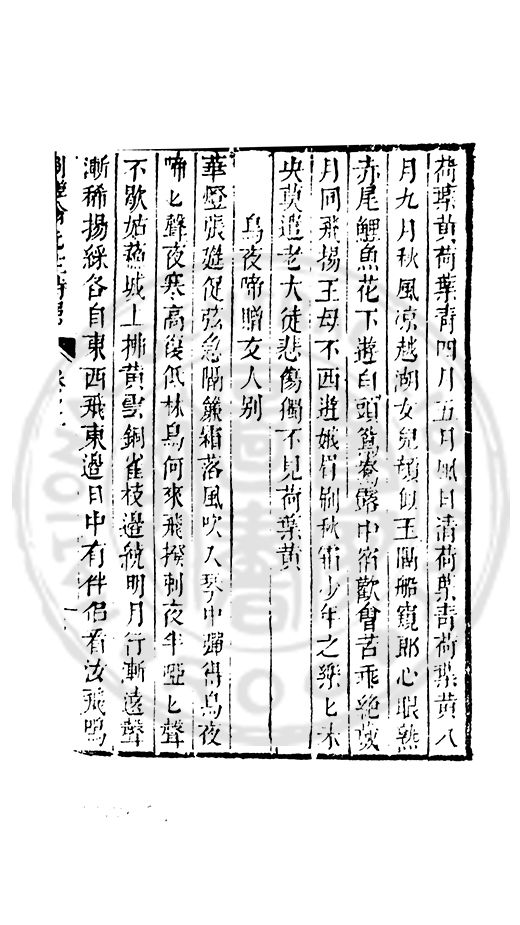 荷葉黃荷葉青四月五月風日清荷葉青荷葉黃八
月九月秋風凉越湖女兒顏似玉隔船窺郎心眼熱
赤尾鯉魚花下遊白頭鴛鴦露中宿歡會苦乖絶歲
月同飛揚王母不西遊娥眉別秋霜少年之樂匕未
央莫遣老大徒悲傷獨不見荷葉黃
烏夜啼贈女人別
華燈張筵促弦急隔簾霜落風吹入琴中彈得烏夜
啼匕聲夜寒高復低林烏何來飛撥剌夜半啞匕聲
不歇姑蘇城上拂黃雲銅雀枝邊繞明月行漸遠聲
漸稀揚綵各自東西飛東邊日中有伴侣看汝飛鳴